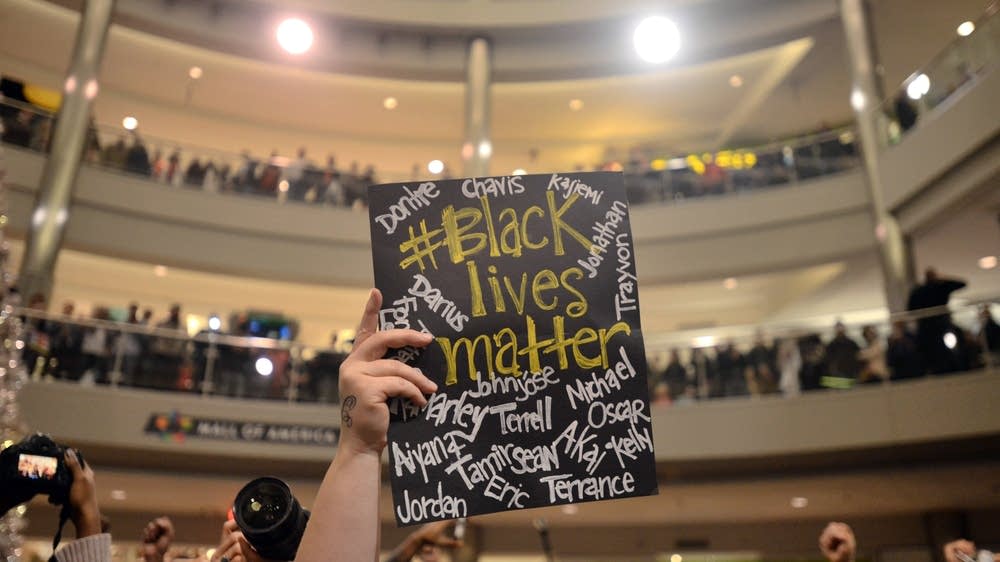 Dontre Chavis Kajiemi
#Black
lives
matter
Jonathan
Trayvon
Darius
Johnjose
Michael
Terrell
Oscar
Aiyana
Tamir
Sean
Akai
Kelly
Jordan
Eric
Terrance
MALL OF AMERICA